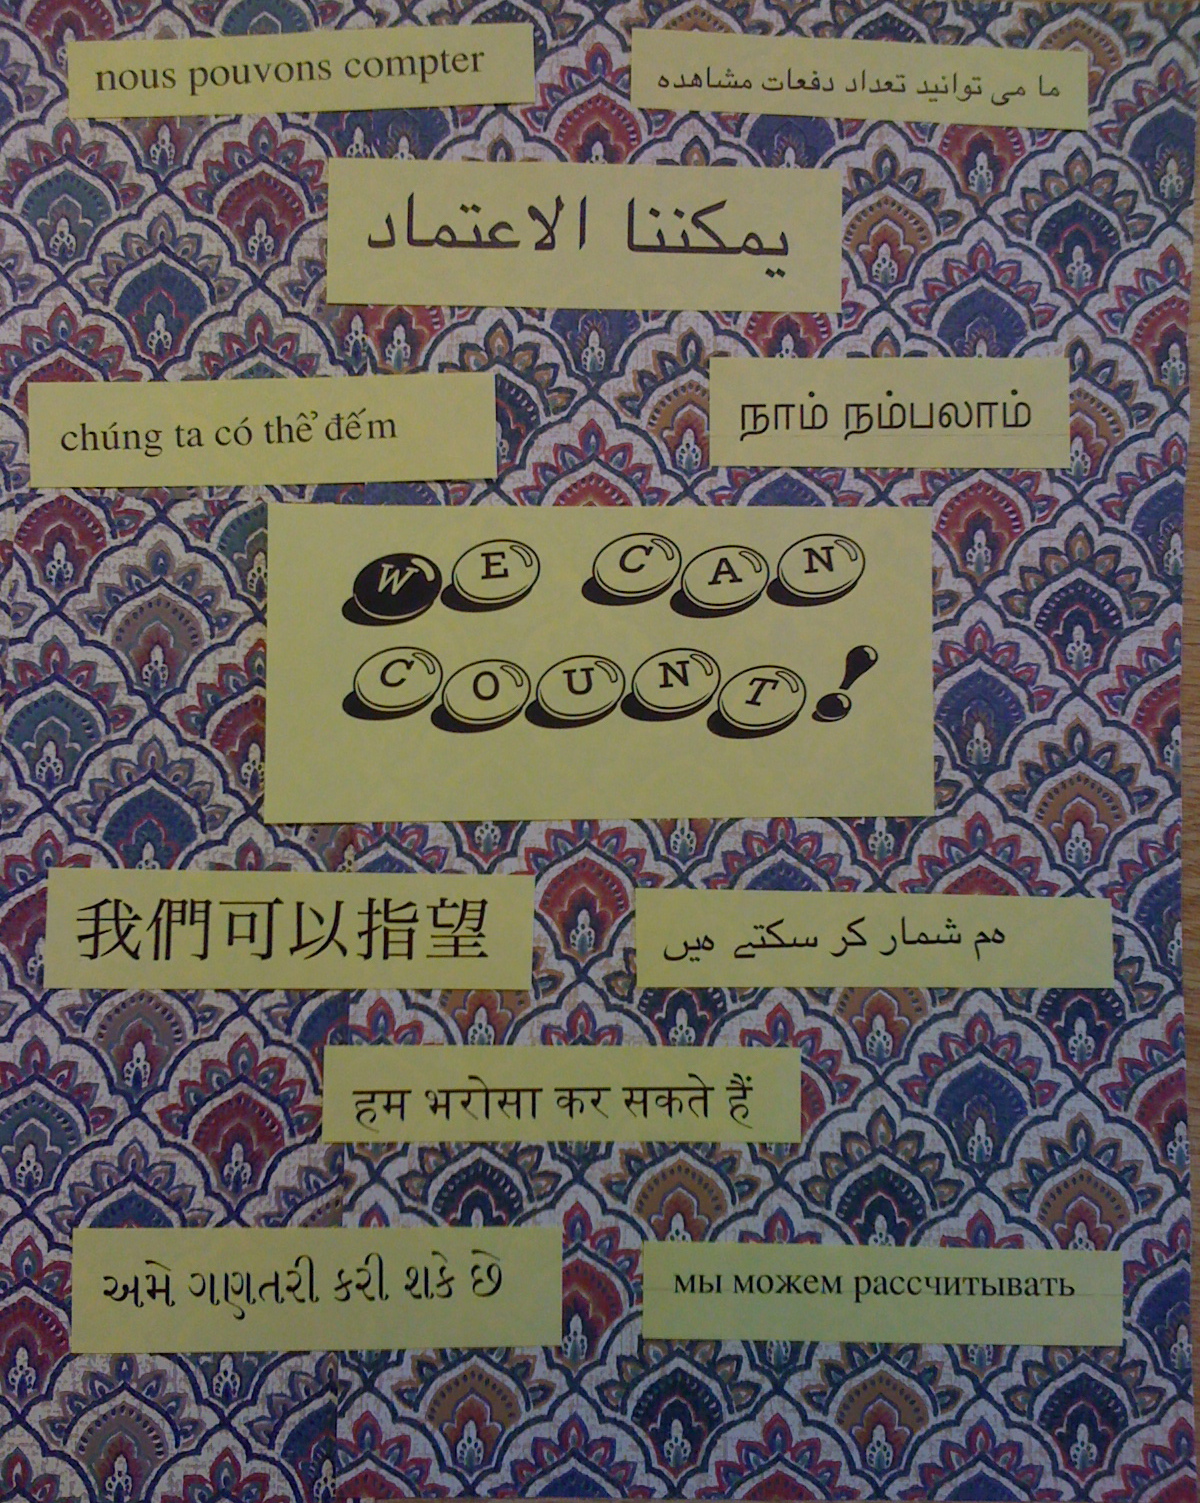 nous pouvons compter
ما می توانید تعداد دفعات مشاهده
يمكننا الاعتماد
chúng ta có thể đếm
நாம் நம்பலாம்
WE CAN
COUNT!
我們可以指望
ہم شمار کر سکتے ہیں
हम भरोसा कर सकते हैं
અમે ગણતરી કરી શકે છે
мы можем рассчитывать